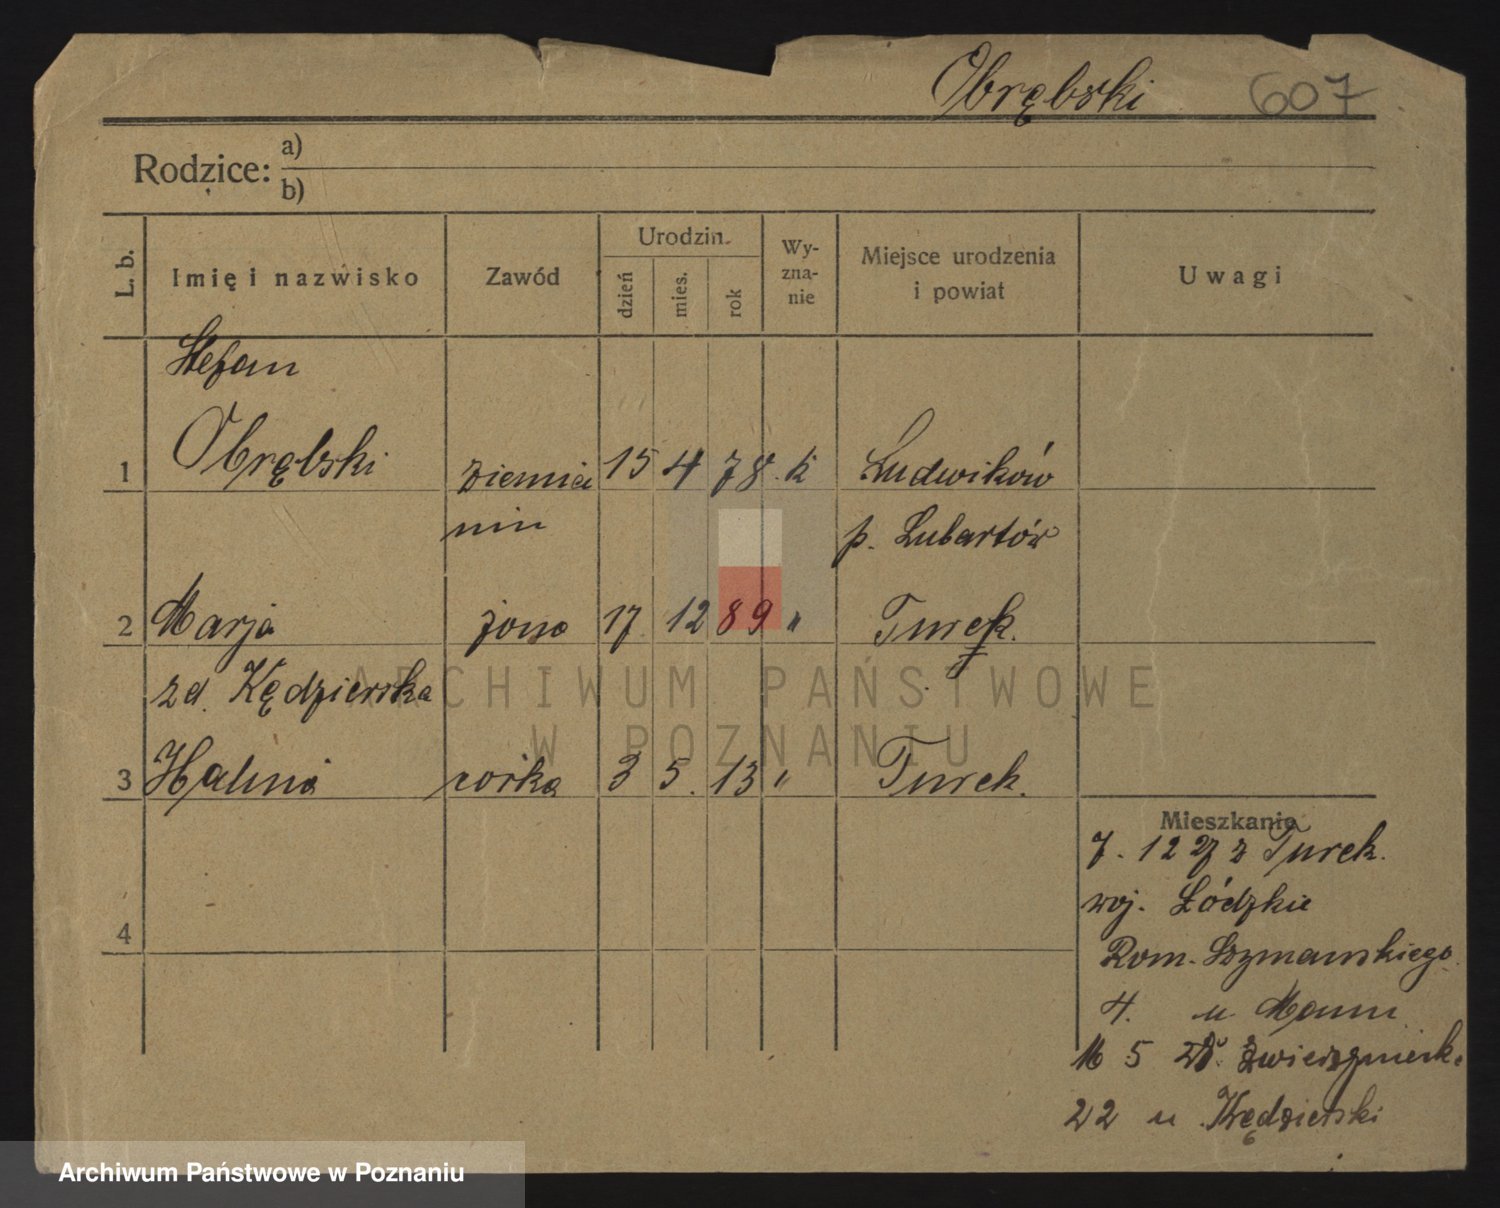 Obrębski 607
Rodzice: a)
b)
L. b. Imię i nazwisko Zawód Urodzin. dzień mies. rok Wy-zna-nie Miejsce urodzenia i powiat Uwagi
Stefan
1 Obrębski ziemia 15 4 78. k Ludwików
nin p. Lubartów
2 Marja żona 17 12 89 " Turek.
zd. Kędzierska
ARCHIWUM PAŃSTWOWE
W POZNANIU
3 Halina córka 3 5. 13 " Turek.
Mieszkanie
7. 12 27 z Turek.
woj. Łódzkie
4
Rom. Szymańskiego
4. u Mann
5 Zwierzyniecka
22 u Kędzierski
Archiwum Państwowe w Poznaniu